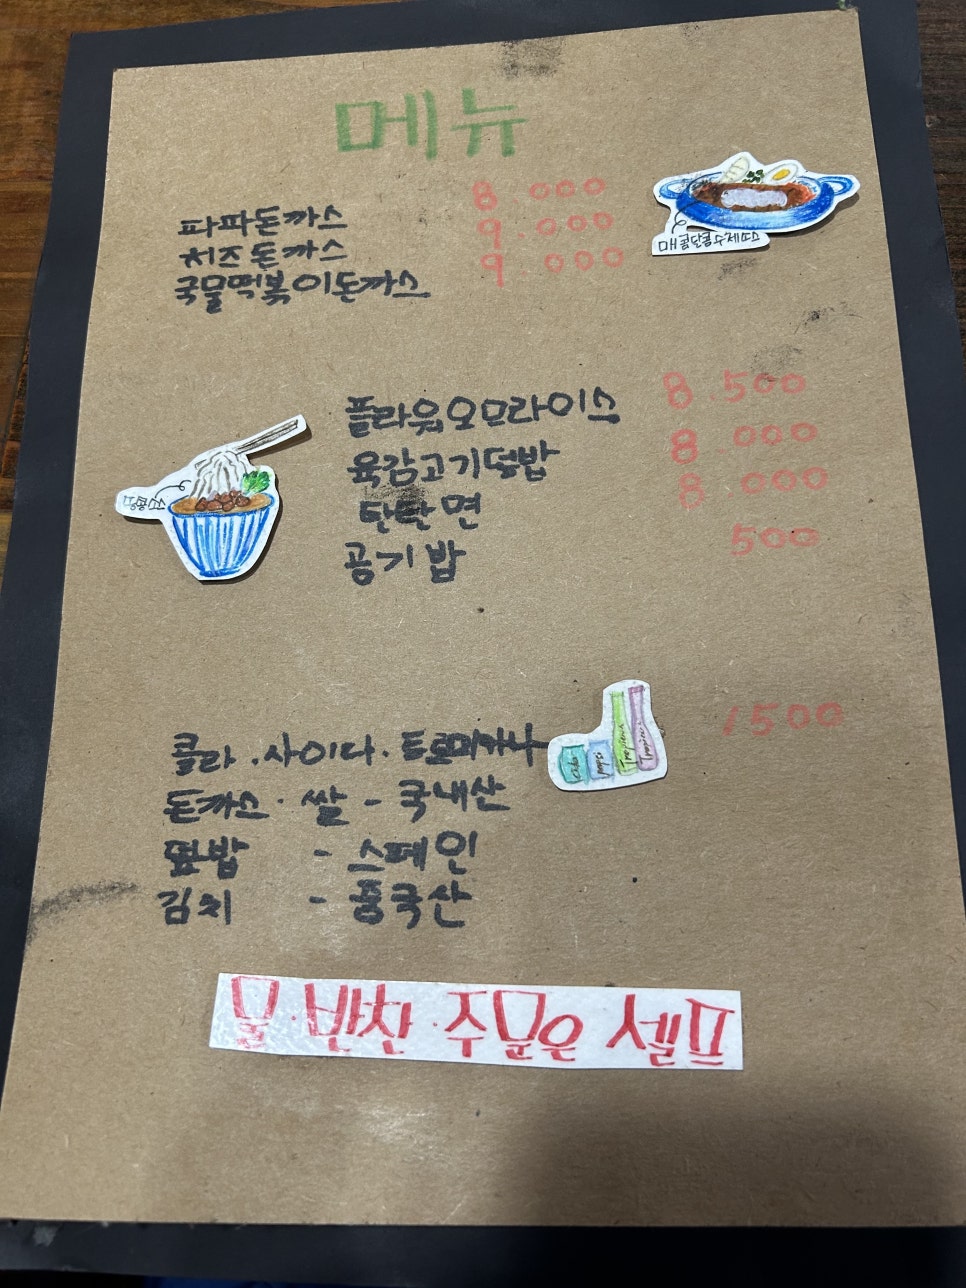 메뉴
파파돈까스 8.000
치즈돈까스 9.000
국물떡볶이돈까스 9.000
플라워오므라이스 8.500
육감고기덮밥 8.000
탄탄면 8.000
공기밥 500
콜라.사이다.트로피카나 1500
돈까스.쌀-국내산
덮밥 - 스페인
김치 - 중국산
물.반찬.주문은 셀프